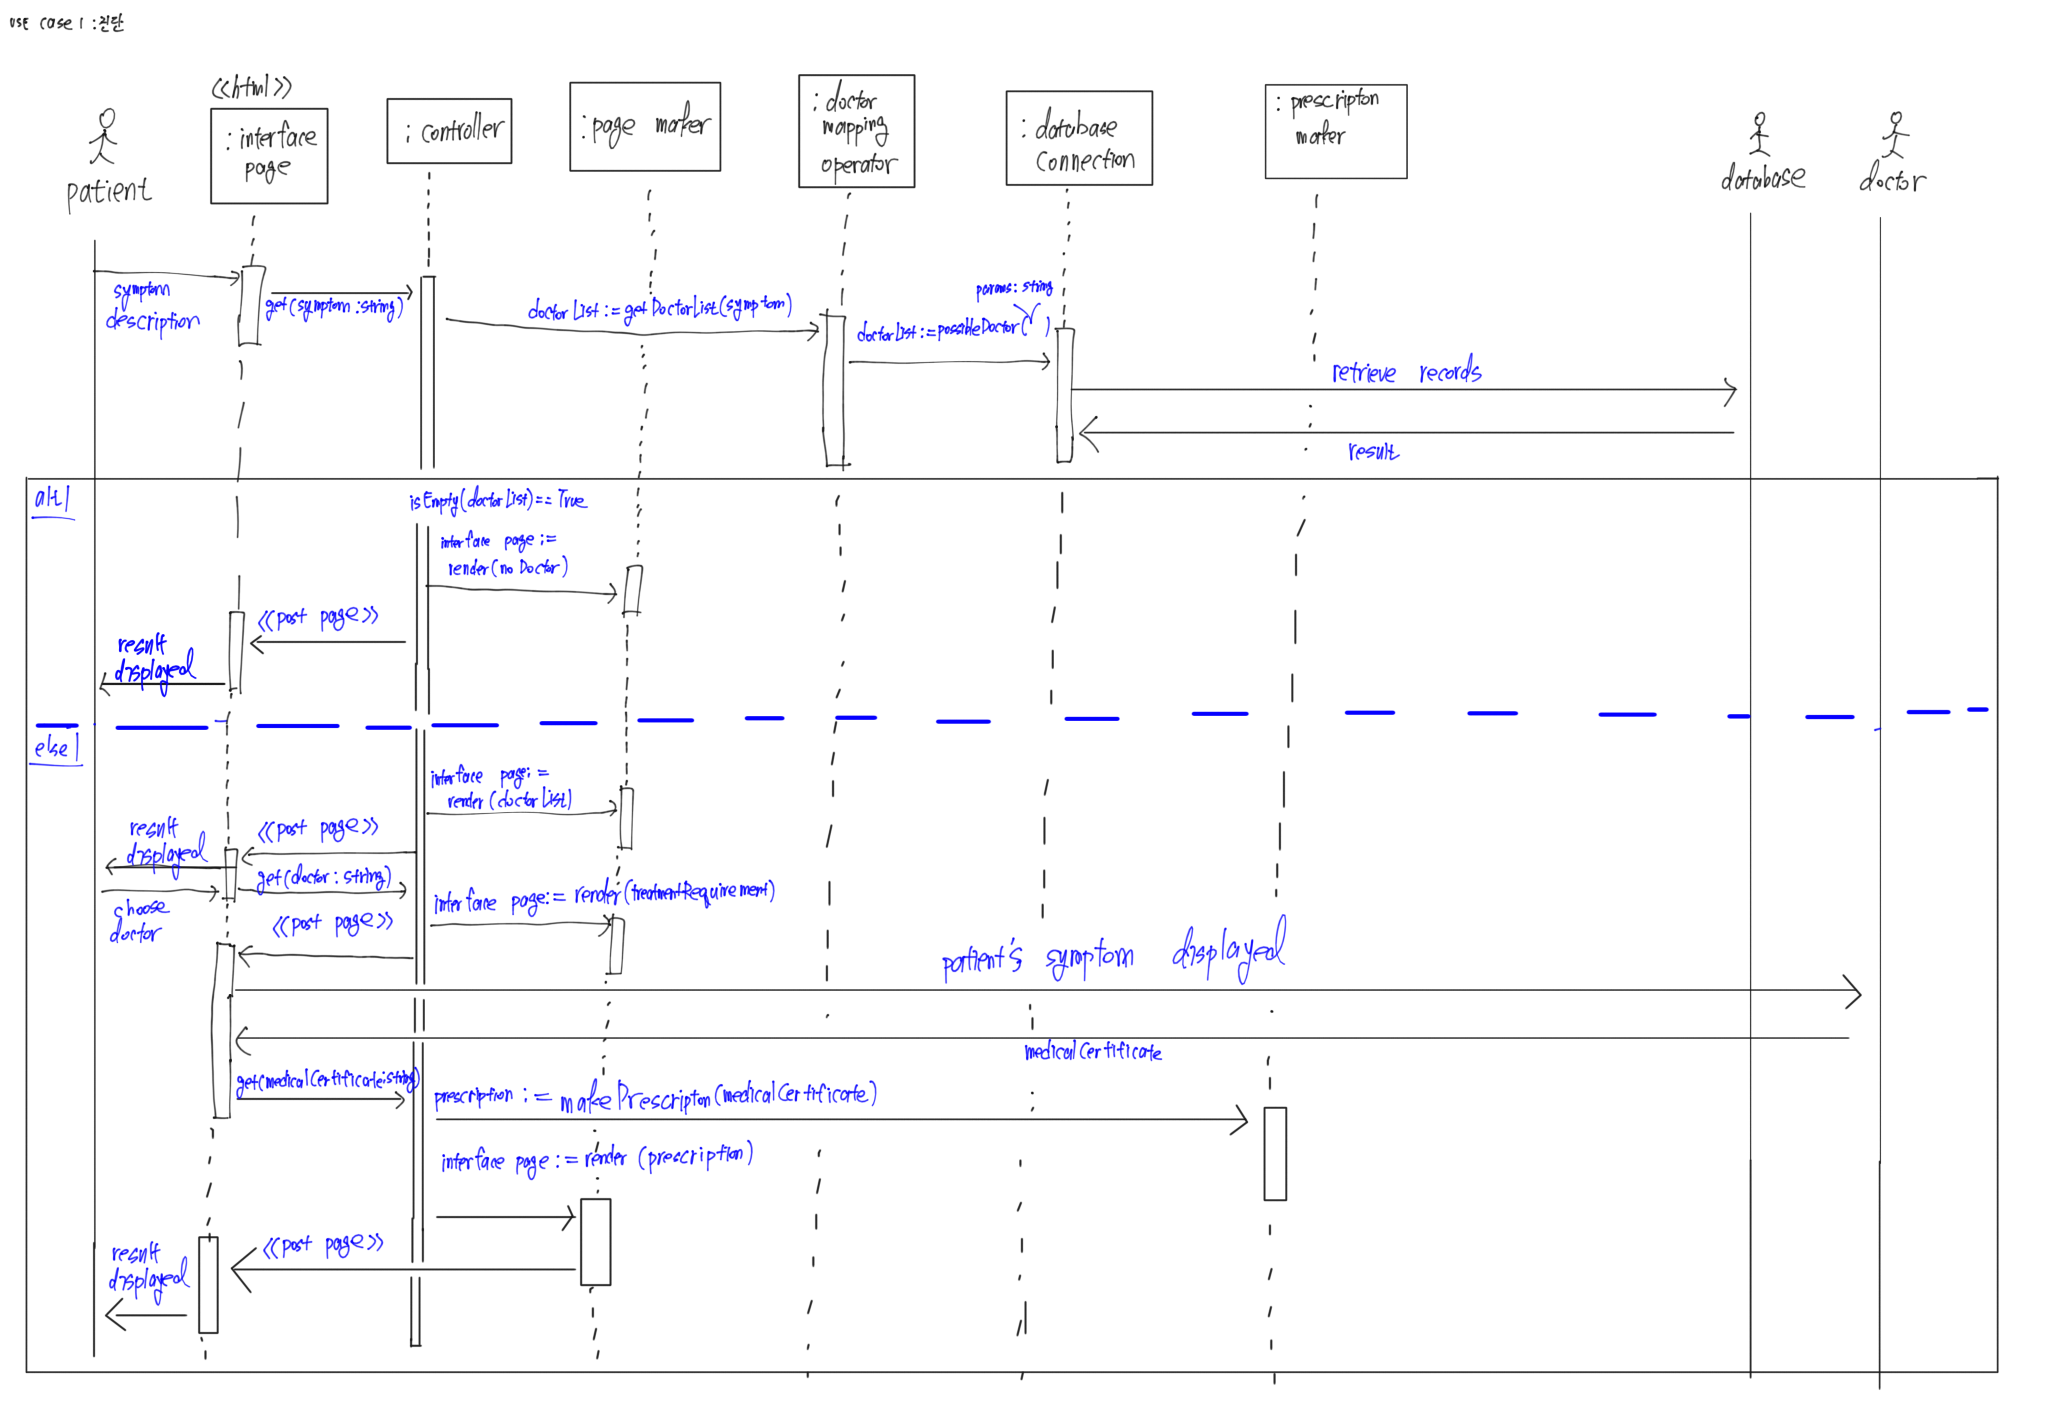 USE case 1 : 진단
<<html>>
: interface
page
: controller
: page maker
: doctor
mapping
operator
: database
connection
: prescripton
maker
patient
database
doctor
symptom
description
get(symptom:string)
doctorList:=getDoctorList(symptom)
params: string
doctorList:=possibleDoctor( )
retrieve records
result
alt1
isEmpty(doctorList)==True
interface page :=
render(noDoctor)
<<post page>>
result
displayed
else1
interface page:=
render(doctorList)
<<post page>>
result
displayed
get(doctor:string)
choose
doctor
interface page:=render(treatmentRequirement)
<<post page>>
patient's symptom displayed
medicalCertificate
get(medicalCertificate:string)
prescription := makePrescripton(medicalCertificate)
interface page:=render (prescription)
<<post page>>
result
displayed